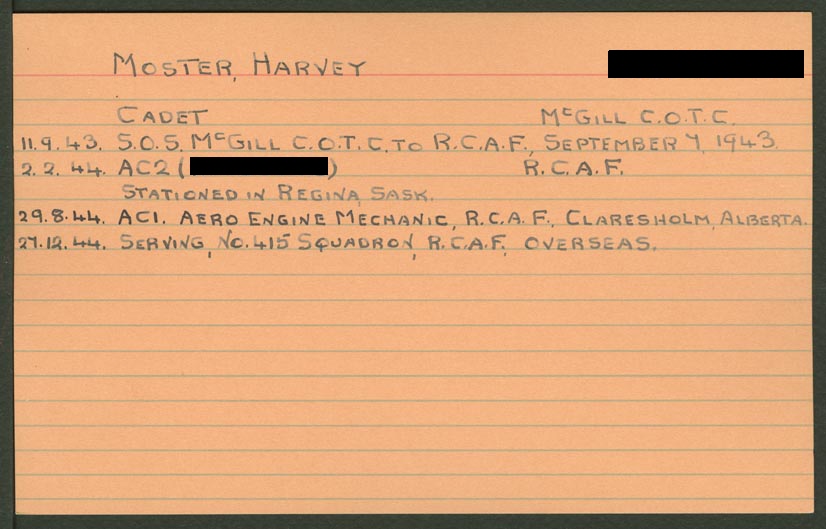 MOSTER, HARVEY
CADET McGILL C.O.T.C.
11.9.43. S.O.S. McGILL C.O.T.C. TO R.C.A.F., SEPTEMBER 7, 1943.
2.2.44. AC2 ( ) R.C.A.F.
STATIONED IN REGINA, SASK.
29.8.44. AC1. AERO ENGINE MECHANIC, R.C.A.F., CLARESHOLM, ALBERTA.
27.12.44. SERVING, NO. 415 SQUADRON, R.C.A.F., OVERSEAS.